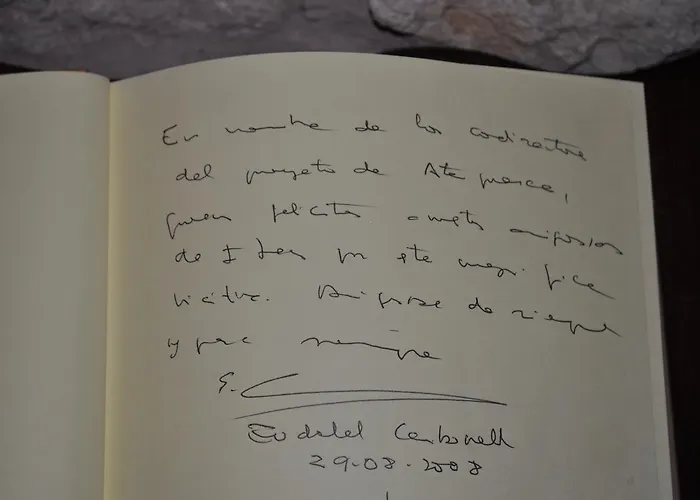 En nombre de los codirectores
del proyecto de Atapuerca,
quiero felicitar a nuestros amigos
de por este magnifica
iniciativa. Amigos de siempre
y para siempre
E. C
Eudald Carbonell
29-08-2008